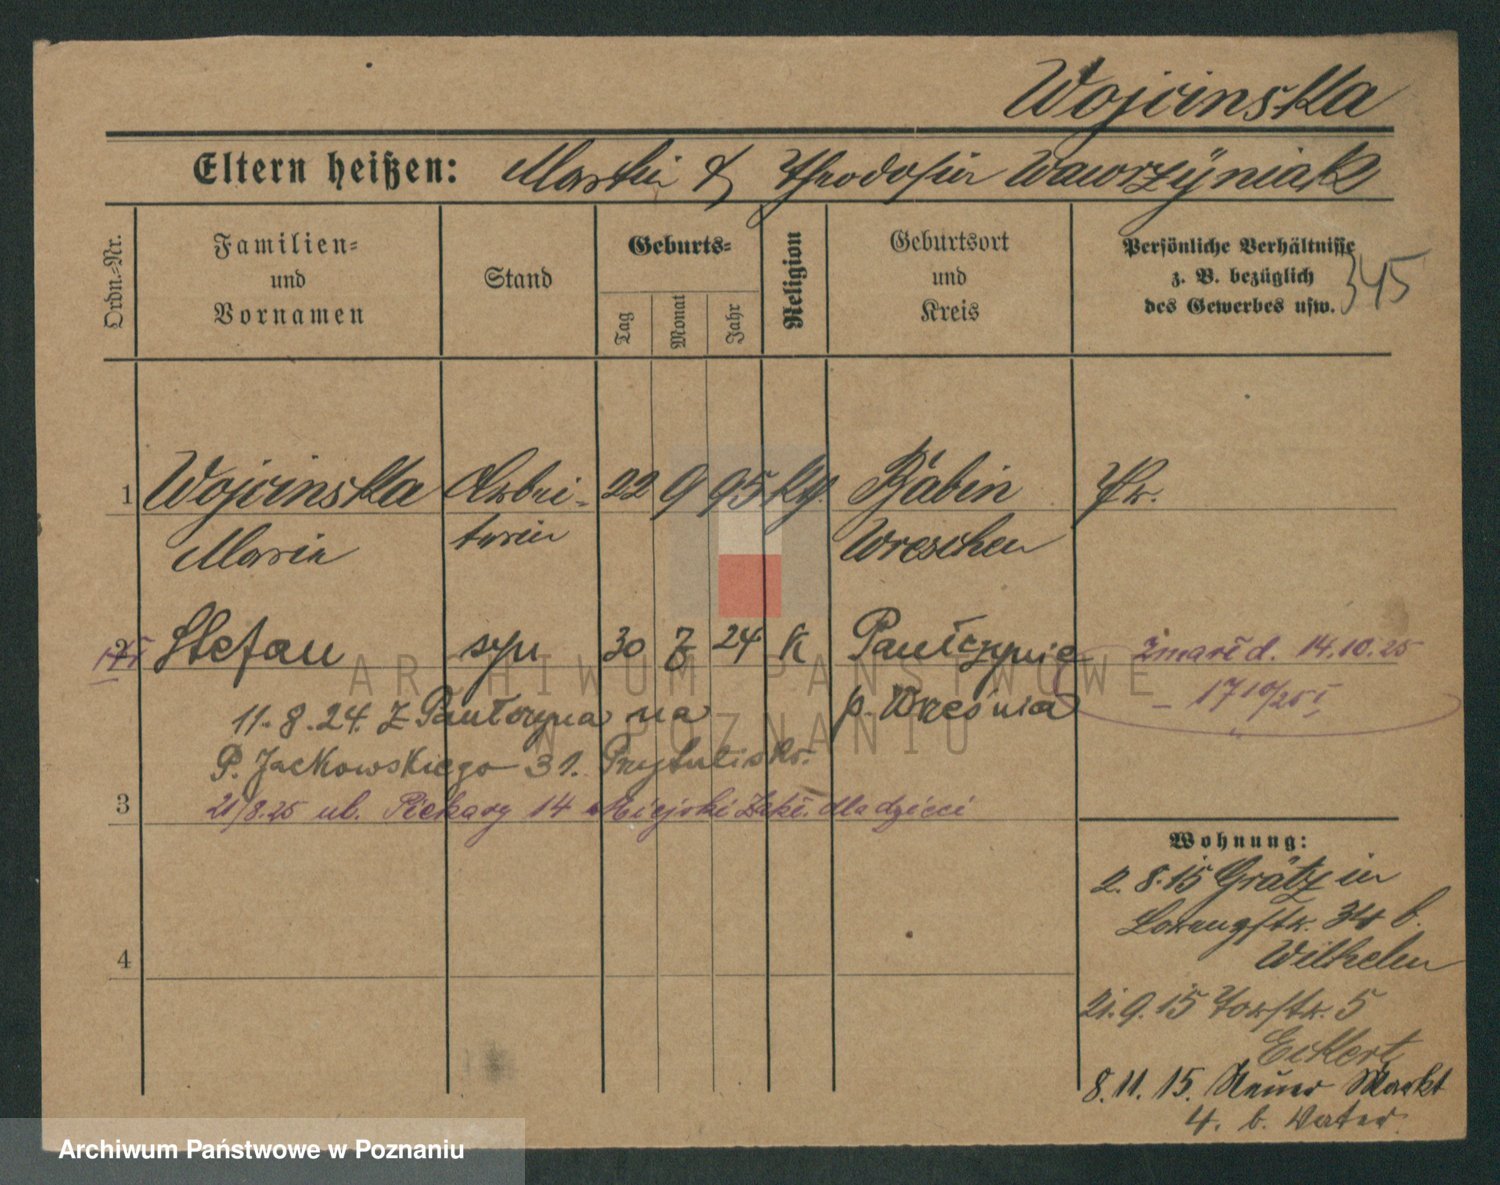 Wojcinska
Eltern heißen: Martin & Theodosia Wawrzÿniak
Ordn.-Nr.
Familien-
und
Vornamen
Stand
Geburts-
Tag
Monat
Jahr
Religion
Geburtsort
und
Kreis
Persönliche Verhältnisse
z. B. bezüglich
des Gewerbes usw.
345
1 Wojcinska Arbei- 22 9 95 Babin Pr.
Maria terin Wreschen
2 Stefan syn 30 7 24 K Pautczynie Zmarł d. 14.10.25
11.8.24. Z na p. Września
P. Jackowskiego 31.
21/8.25 ul. Piekary 14 Miejski Zakł. dla dzieci
3
Wohnung:
2. 8. 15 Grätz in
34 b.
Wilhelm
4
21. 9. 15 5
Eckert
8. 11. 15. Neuer Markt
4. b. Vater.
ARCHIWUM PAŃSTWOWE
W POZNANIU
Archiwum Państwowe w Poznaniu